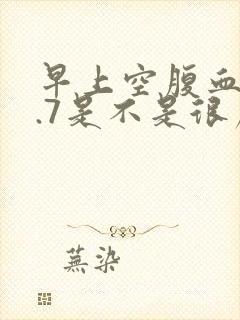 早上空腹血
.7是不是很
蕪染